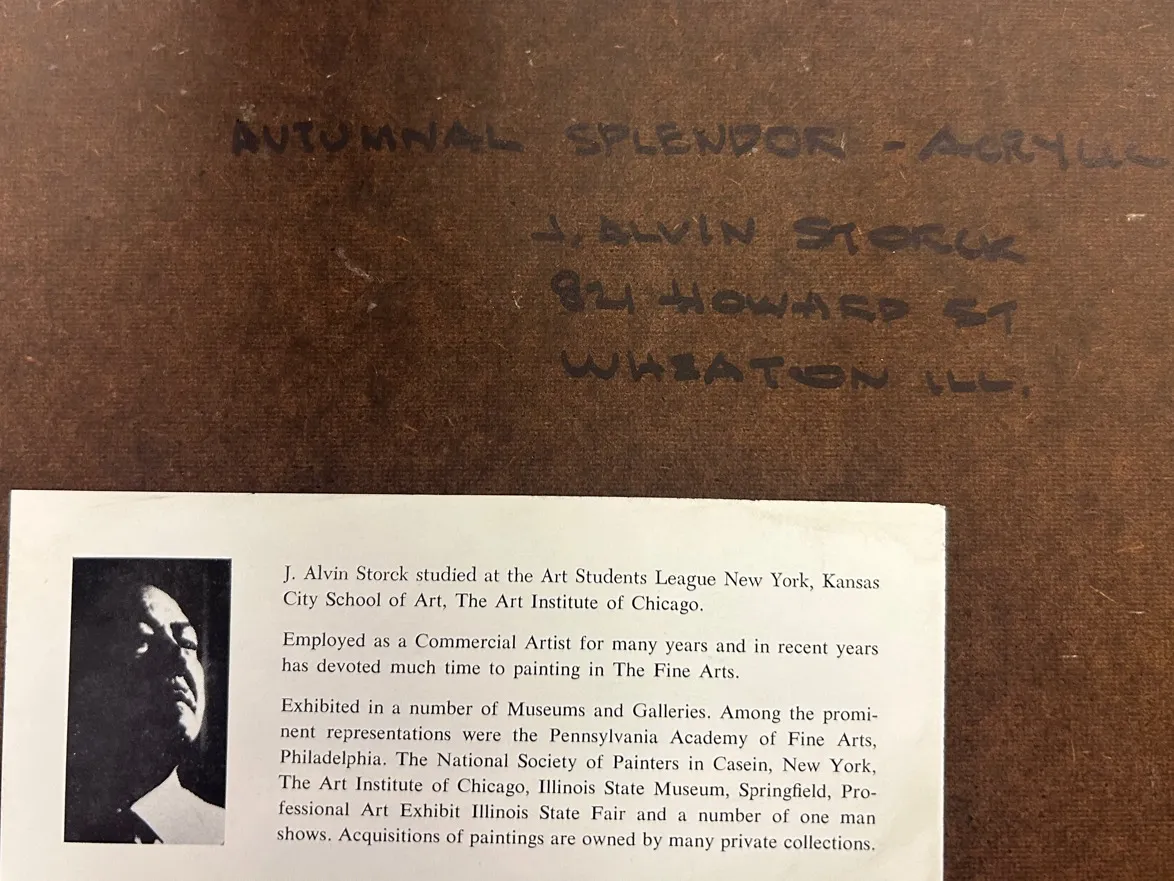 AUTUMNAL SPLENDOR - ACRYLIC
J. ALVIN STORCK
821 HOWARD ST
WHEATON ILL.
J. Alvin Storck studied at the Art Students League New York, Kansas
City School of Art, The Art Institute of Chicago.
Employed as a Commercial Artist for many years and in recent years
has devoted much time to painting in The Fine Arts.
Exhibited in a number of Museums and Galleries. Among the promi-
nent representations were the Pennsylvania Academy of Fine Arts,
Philadelphia. The National Society of Painters in Casein, New York,
The Art Institute of Chicago, Illinois State Museum, Springfield, Pro-
fessional Art Exhibit Illinois State Fair and a number of one man
shows. Acquisitions of paintings are owned by many private collections.